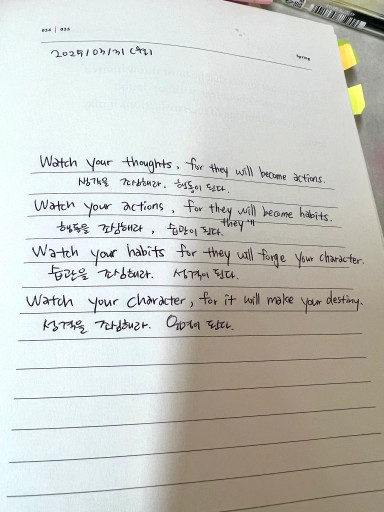 034 | 035
Spring
2025/03/31 (월)
Watch your thoughts, for they will become actions.
생각을 조심해라. 행동이 된다.
Watch your actions, for they will become habits.
they'll
행동을 조심해라, 습관이 된다.
Watch your habits for they will forge your character.
습관을 조심해라. 성격이 된다.
Watch your character, for it will make your destiny.
성격을 조심해라. 운명이 된다.